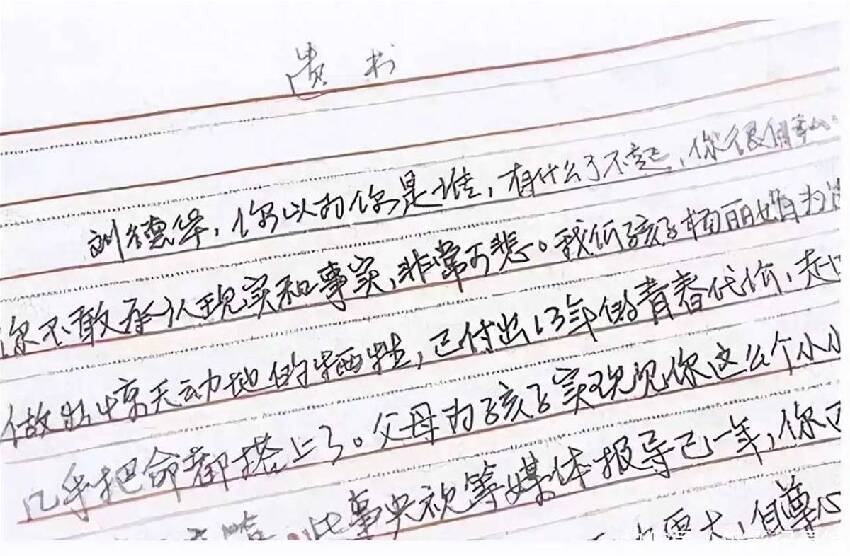 遗书
刘德华,你以为你是谁,有什么了不起,你很自
你不敢承认现实和事实,非常可悲。我们孩子杨丽娟为
做出惊天动地的牺牲,已付出13年的青春代价,
几乎把命都搭上了。父母为孩子实现见你这么个小小
此事央视等媒体报导已一年,你
自尊心